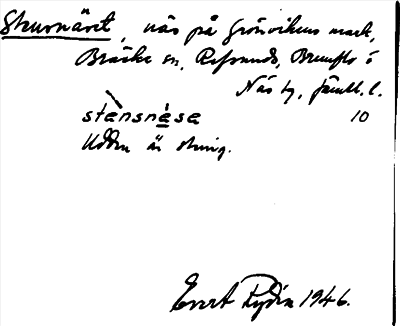 Stensnäset, näs på Grönvikens mark,
Bräcke sn, Refsunds, Brunflo o
Näs tg, Jämtl. l.
stènsnèse 10
Udden är stenig.
Evert Rydin 1946.